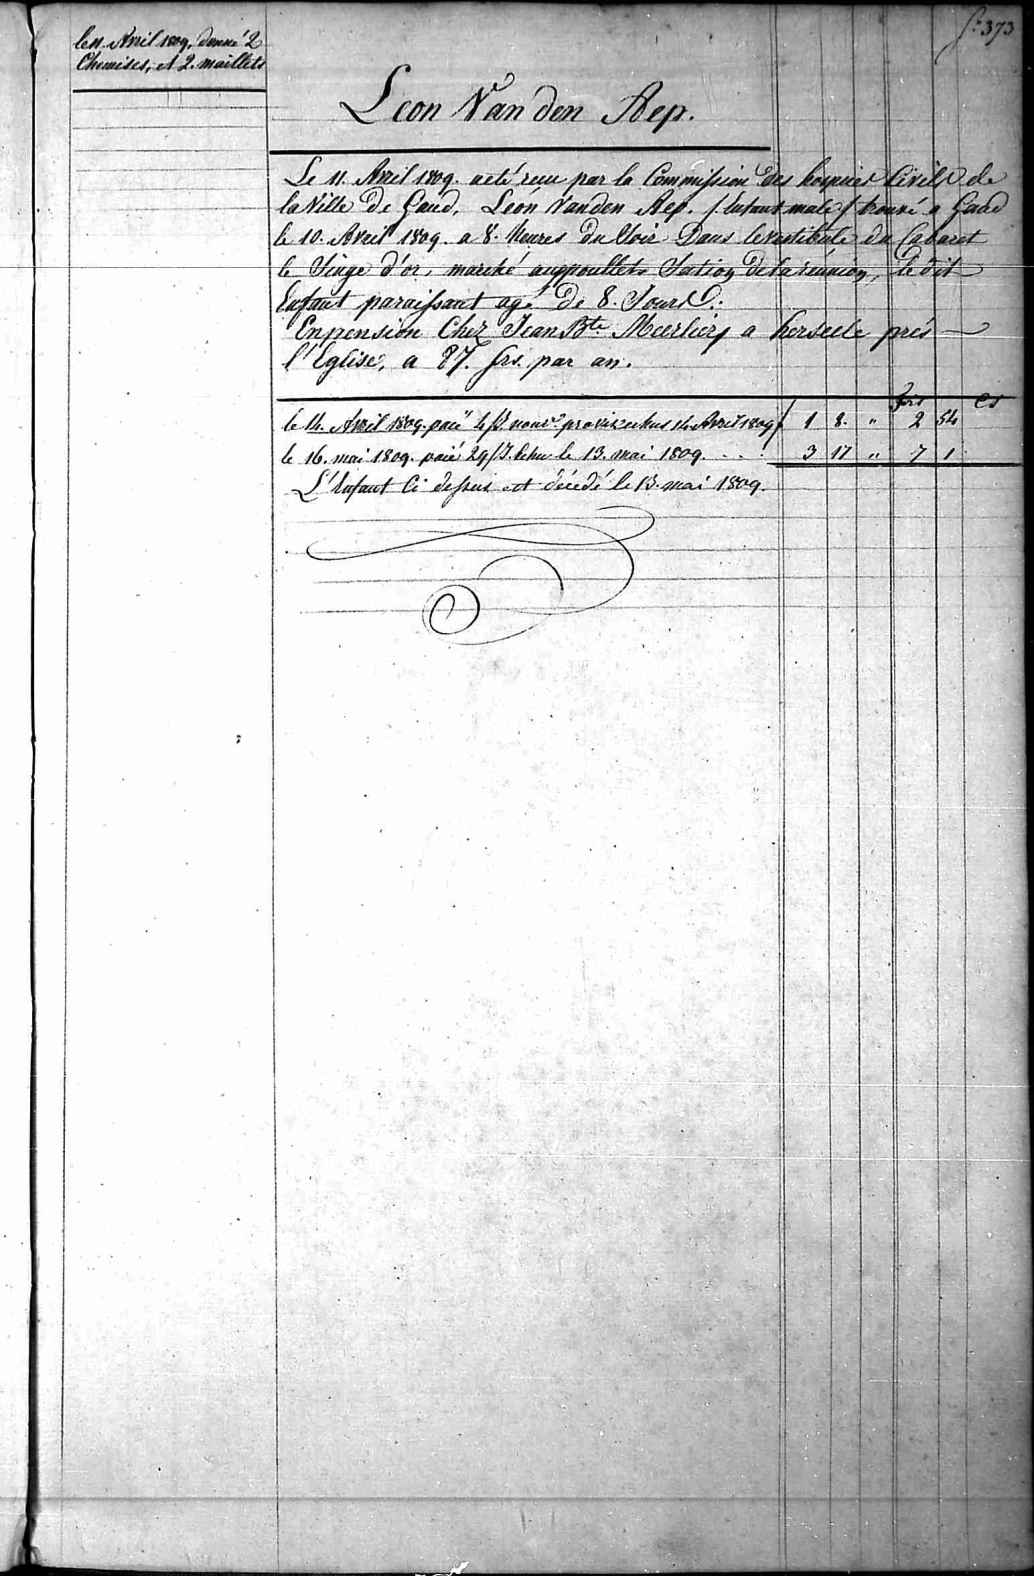 f.° 373
le 11. Avril 1809, donné 2
Chemises, et 2. maillets
Léon Van den Aep.
Le 11. Avril 1809. a eté recu par la Commission des hospices Civils de
la Ville de Gand, Léon Vanden Aep. / Enfant male / trouvé a Gand
le 10. Avril 1809. a 8. Heures du Soir Dans le vestibule du Cabaret
le Singe d'or, marché aux poullets Sation de la réunion, le dit
Enfant paraissant agé de 8. Jours.
En pension Chez Jean Bte. Meerliers a herseele près
l'Eglise, a 87. frs. par an.
frs cs
le 14. Avril 1809. paié 1 8. " 2 54
le 16. mai 1809. paié 29 echu le 13. mai 1809. . . . 3 17 " 7 1
L'Enfant Ci dessus est décédé le 13. mai 1809.